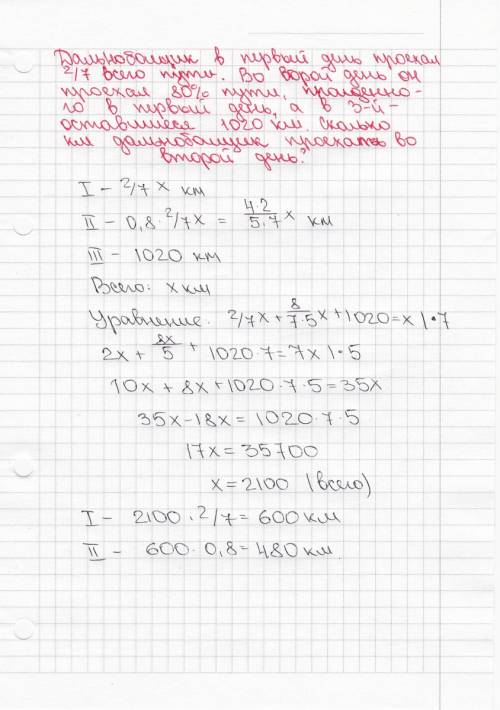 Дальнобойщик в первый день проехал
2/7 всего пути. Во ворой день он
проехал 80% пути, пройденно-
го в первый день, а в 3-й-
оставшиеся 1020 км. Сколько
км дальнобойщик проехать во
второй день?
I - 2/7 x км
II - 0,8 · 2/7x = 4·2/5·7 x км
III - 1020 км
Всего: x км
Уравнение: 2/7x + 8/7·5 x + 1020 = x | · 7
2x + 8x/5 + 1020·7 = 7x | · 5
10x + 8x + 1020·7·5 = 35x
35x - 18x = 1020·7·5
17x = 35700
x = 2100 (всего)
I - 2100 · 2/7 = 600 км
II - 600 · 0,8 = 480 км.